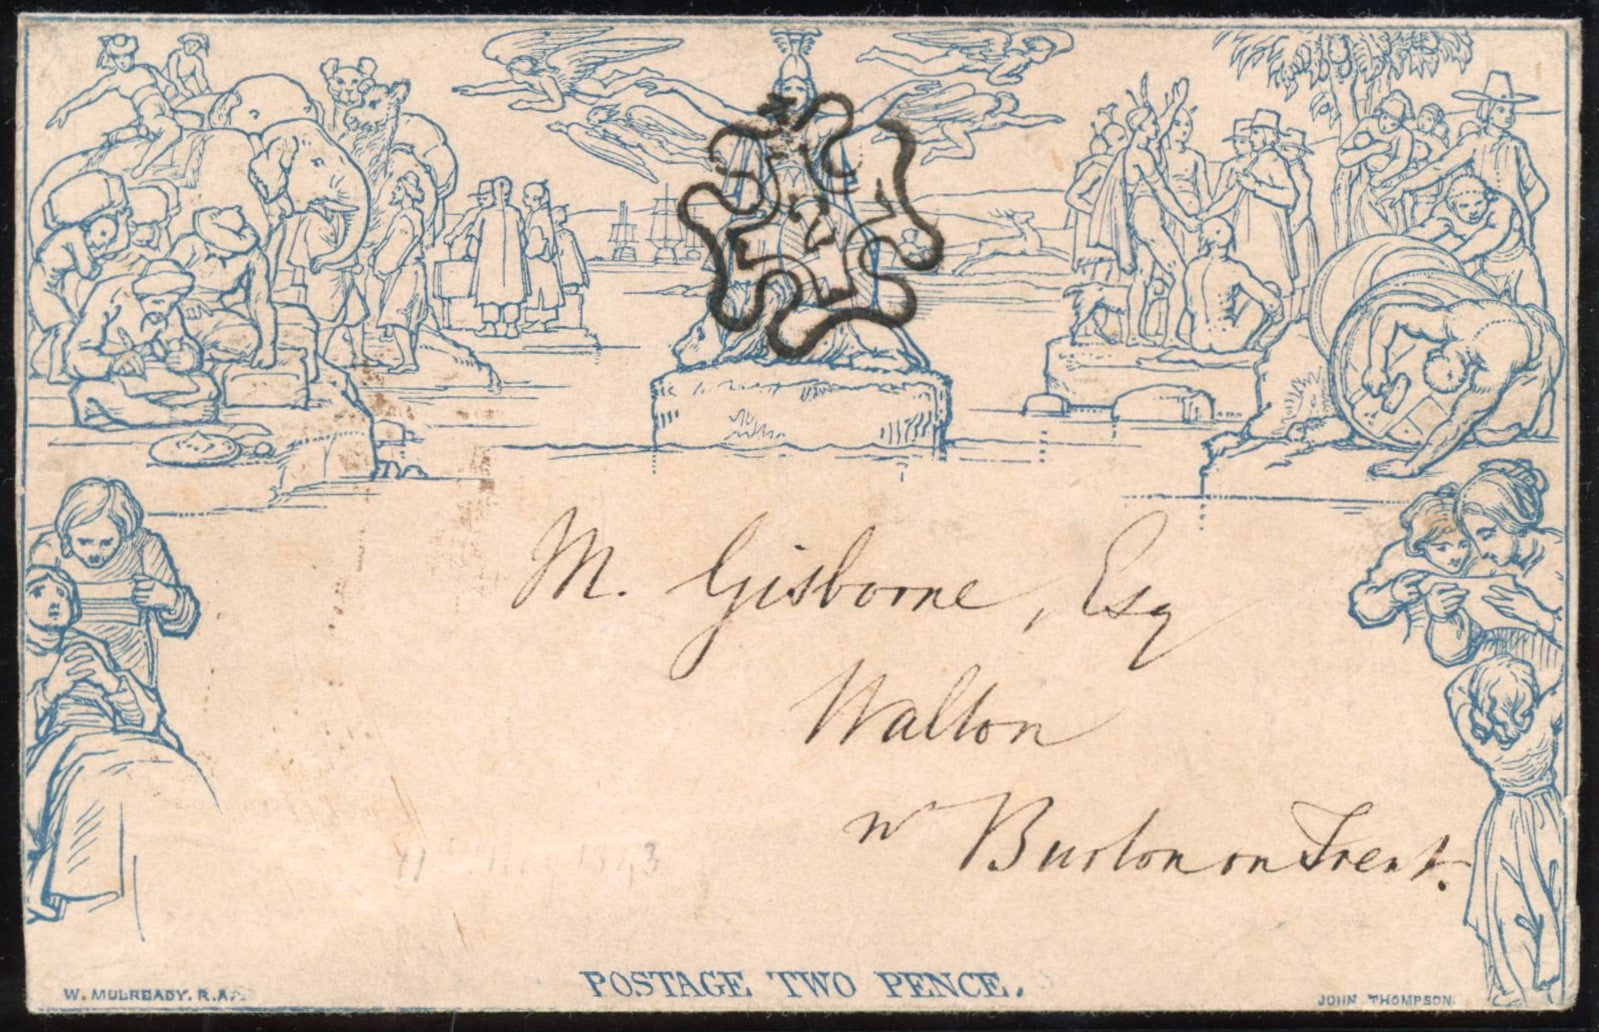 M. Gisborne, Esq
Walton
nr Burton on Trent.
POSTAGE TWO PENCE.
W. MULREADY. R.A.
JOHN THOMPSON.